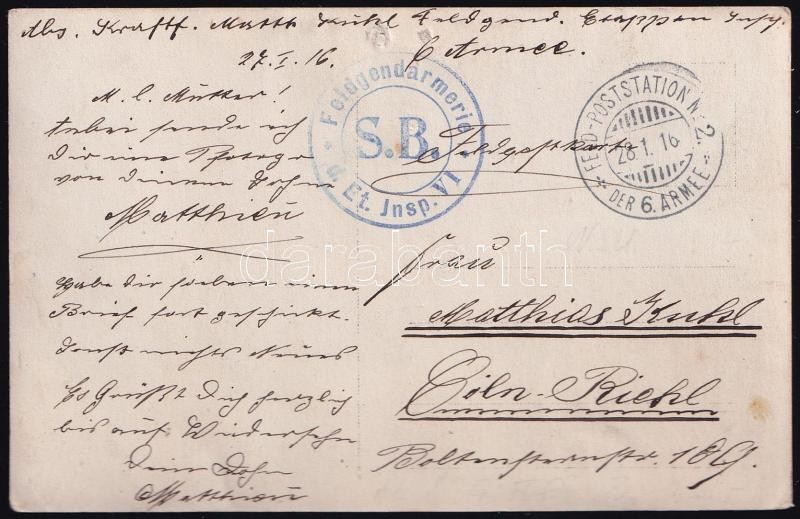 Abs. Krafft. Matth Kuhl Feldgend. Etappen Insp.
27.I.16. 6 Armee.
M. l. Mutter!
Anbei sende ich
Dir eine Photogr
von Deinem Sohn
Matthieu
Habe Dir soeben einen
Brief fort geschickt.
Sonst nichts Neues
Es Grüßt Dich herzlich
bis auf Wiedersehn
Dein Sohn
Matthieu
Feldgendarmerie
S.B.
d. Et. Jnsp. VI
FELD-POSTSTATION Nr. 2.
28.1.16
DER 6. ARMEE
Feldpostkarte
Frau
Matthias Kuhl
Cöln-Riehl
Boltensternstr.
darabanth